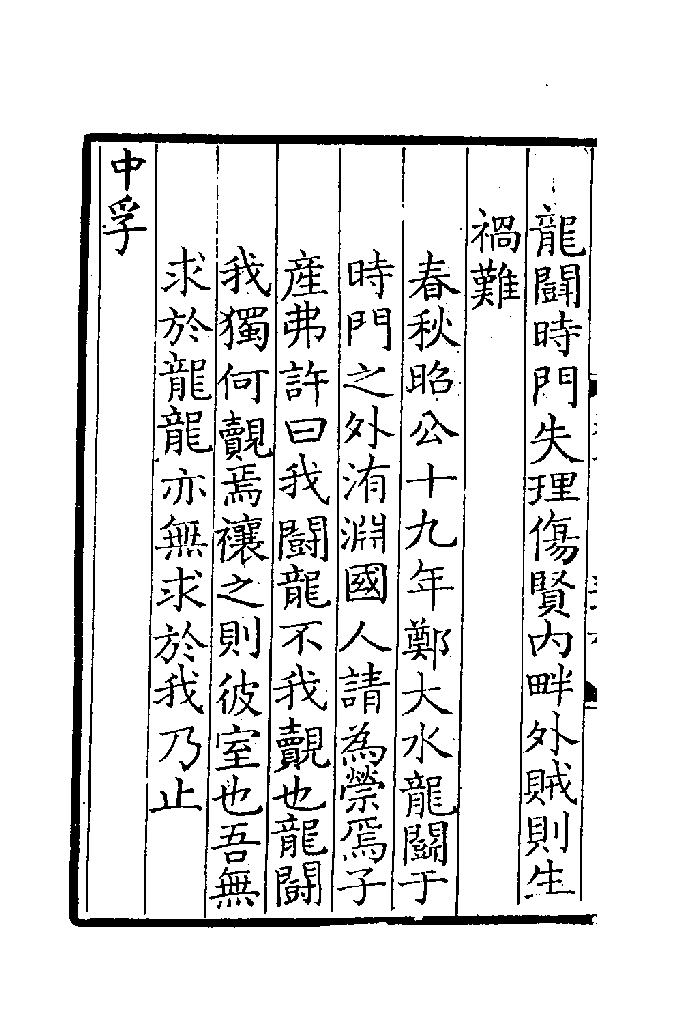 龍闘時門失理傷賢内畔外賊則生
禍難
春秋昭公十九年鄭大水龍闘于
時門之外洧淵國人請為禜焉子
産弗許曰我闘龍不我覿也龍闘
我獨何覿焉禳之則彼室也吾無
求於龍龍亦無求於我乃止
中孚